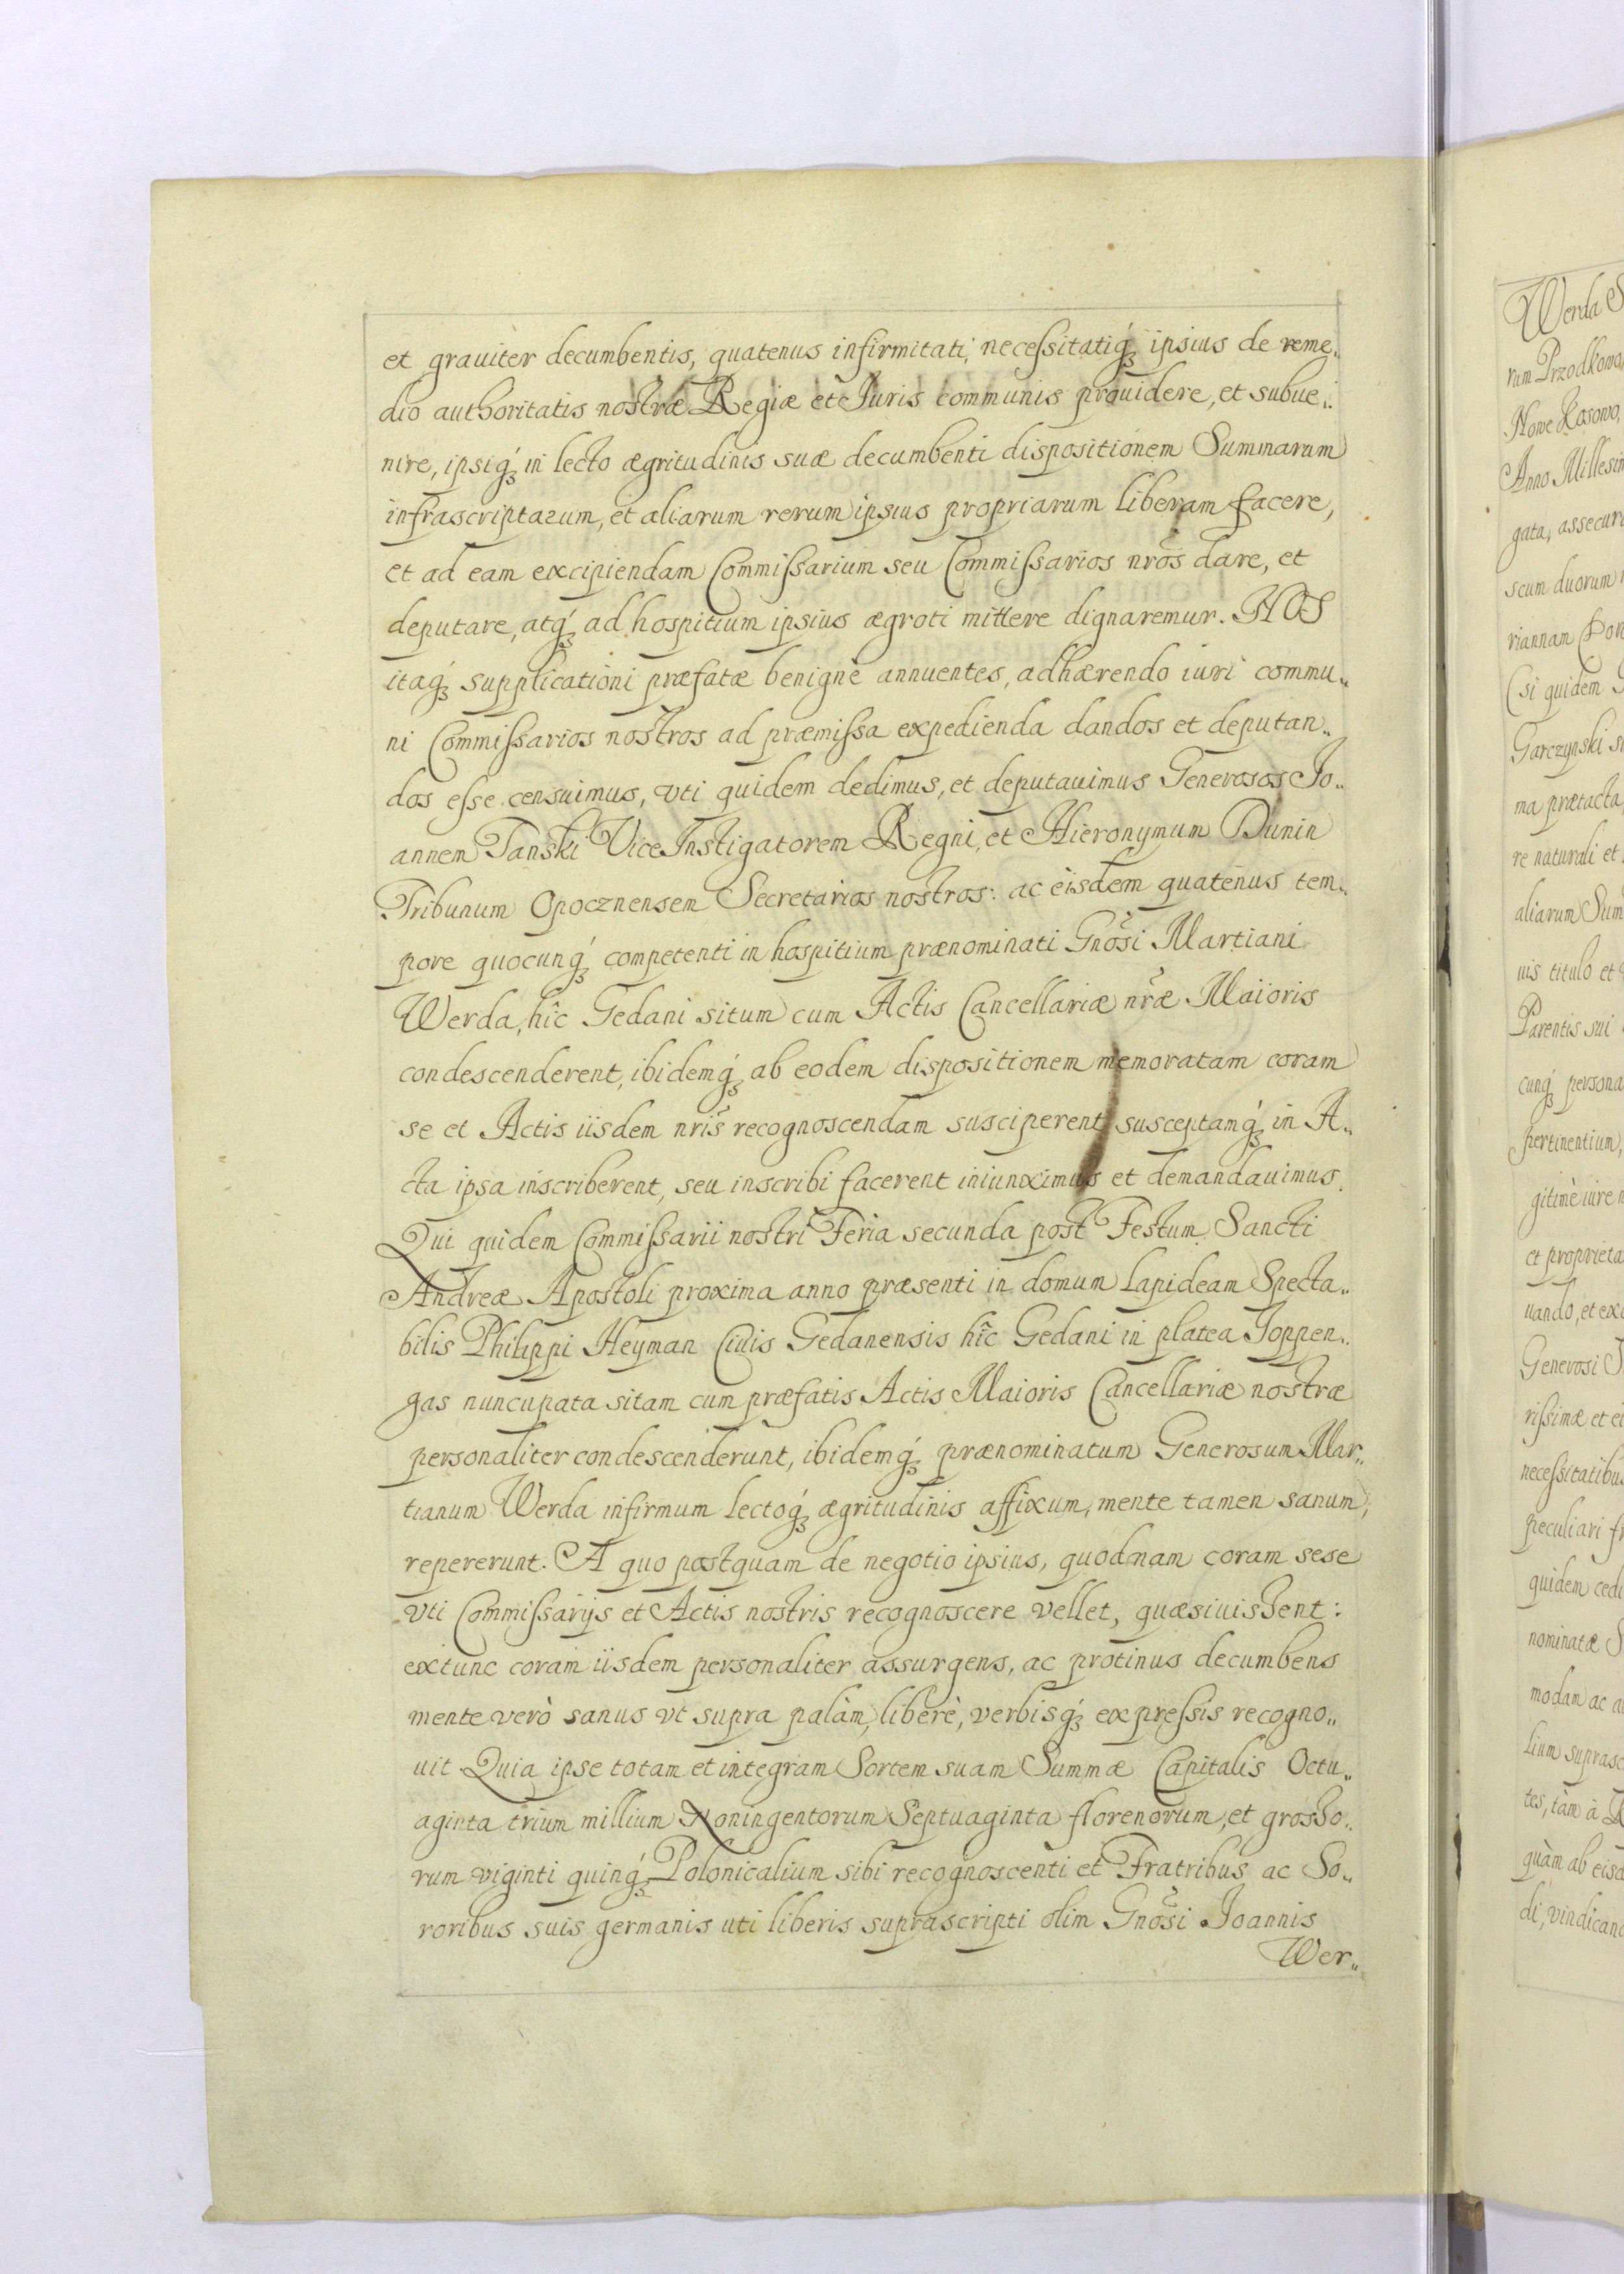 et grauiter decumbentis, quatenus infirmitati, necessitatiq́ꝫ ipsius de reme„
dio authoritatis nostræ Regiæ et Iuris communis prouidere, et subue„
nire, ipsiq́ꝫ in lecto ægritudinis suæ decumbenti dispositionem Summarum
infrascriptarum, et aliarum rerum ipsius propriarum liberam facere,
et ad eam excipiendam Commissarium seu Commissarios nr̃os dare, et
deputare, atq́ꝫ ad hospitium ipsius ægroti mittere dignaremur. NOS
itaq́ꝫ supplicationi præfatæ benignè annuentes, adhærendo iuri commu„
ni Commissarios nostros ad præmissa expedienda dandos et deputan„
dos esse censuimus, vti quidem dedimus, et deputauimus Generosos Io„
annem Tanski Vice Instigatorem Regni, et Hieronymum Dunin
Tribunum Opocznensem Secretarios nostros: ac eisdem quatenus tem„
pore quocunq́ꝫ competenti in hospitium prænominati Gnõsi Martiani
Werda, hîc Gedani situm cum Actis Cancellariæ nr̃æ Maioris
condescenderent, ibidemq́ꝫ ab eodem dispositionem memoratam coram
se et Actis iisdem nr̃is recognoscendam susciperent susceptamq́ꝫ in A„
cta ipsa inscriberent, seu inscribi facerent iniunximus et demandauimus.
Qui quidem Commissarii nostri Feria secunda post Festum Sancti
Andreæ Apostoli proxima anno præsenti in domum lapideam Specta„
bilis Philippi Heyman Ciuis Gedanensis hîc Gedani in platea Joppen„
gas nuncupata sitam cum præfatis Actis Maioris Cancellariæ nostræ
personaliter condescenderunt, ibidemq́ꝫ prænominatum Generosum Mar„
tianum Werda infirmum lectoq́ꝫ ægritudinis affixum, mente tamen sanum,
repererunt. A quo postquam de negotio ipsius, quodnam coram sese
vti Commissarijs et Actis nostris recognoscere vellet, quæsiuissent:
extunc coram iisdem personaliter assurgens, ac protinus decumbens
mente verò sanus vt supra palàm, liberè, verbisq́ꝫ expressis recogno„
uit Quia ipse totam et integram Sortem suam Summæ Capitalis Octu„
aginta trium millium Noningentorum Septuaginta florenorum, et grosso„
rum viginti quinq́ꝫ Polonicalium sibi recognoscenti et Fratribus ac So„
roribus suis germanis uti liberis suprascripti olim Gnõsi Joannis
Wer„
Werda
rum Przodkowa
Nowe Kosowo,
Anno Millesim
gata, assecur
scum duorum
riannam
(si quidem
Garczynski
ma prætacta
re naturali et
aliarum Sum
uis titulo et
Parentis sui
cunq́ꝫ persona
pertinentium,
gitimè iure
et proprieta
uando, et ex
Generosi
rissimæ et ei
necessitatibus
peculiari
quidem ced
nominatæ
modam ac
lium suprasc
tes, tàm à
quàm ab eisd
di, vindicand